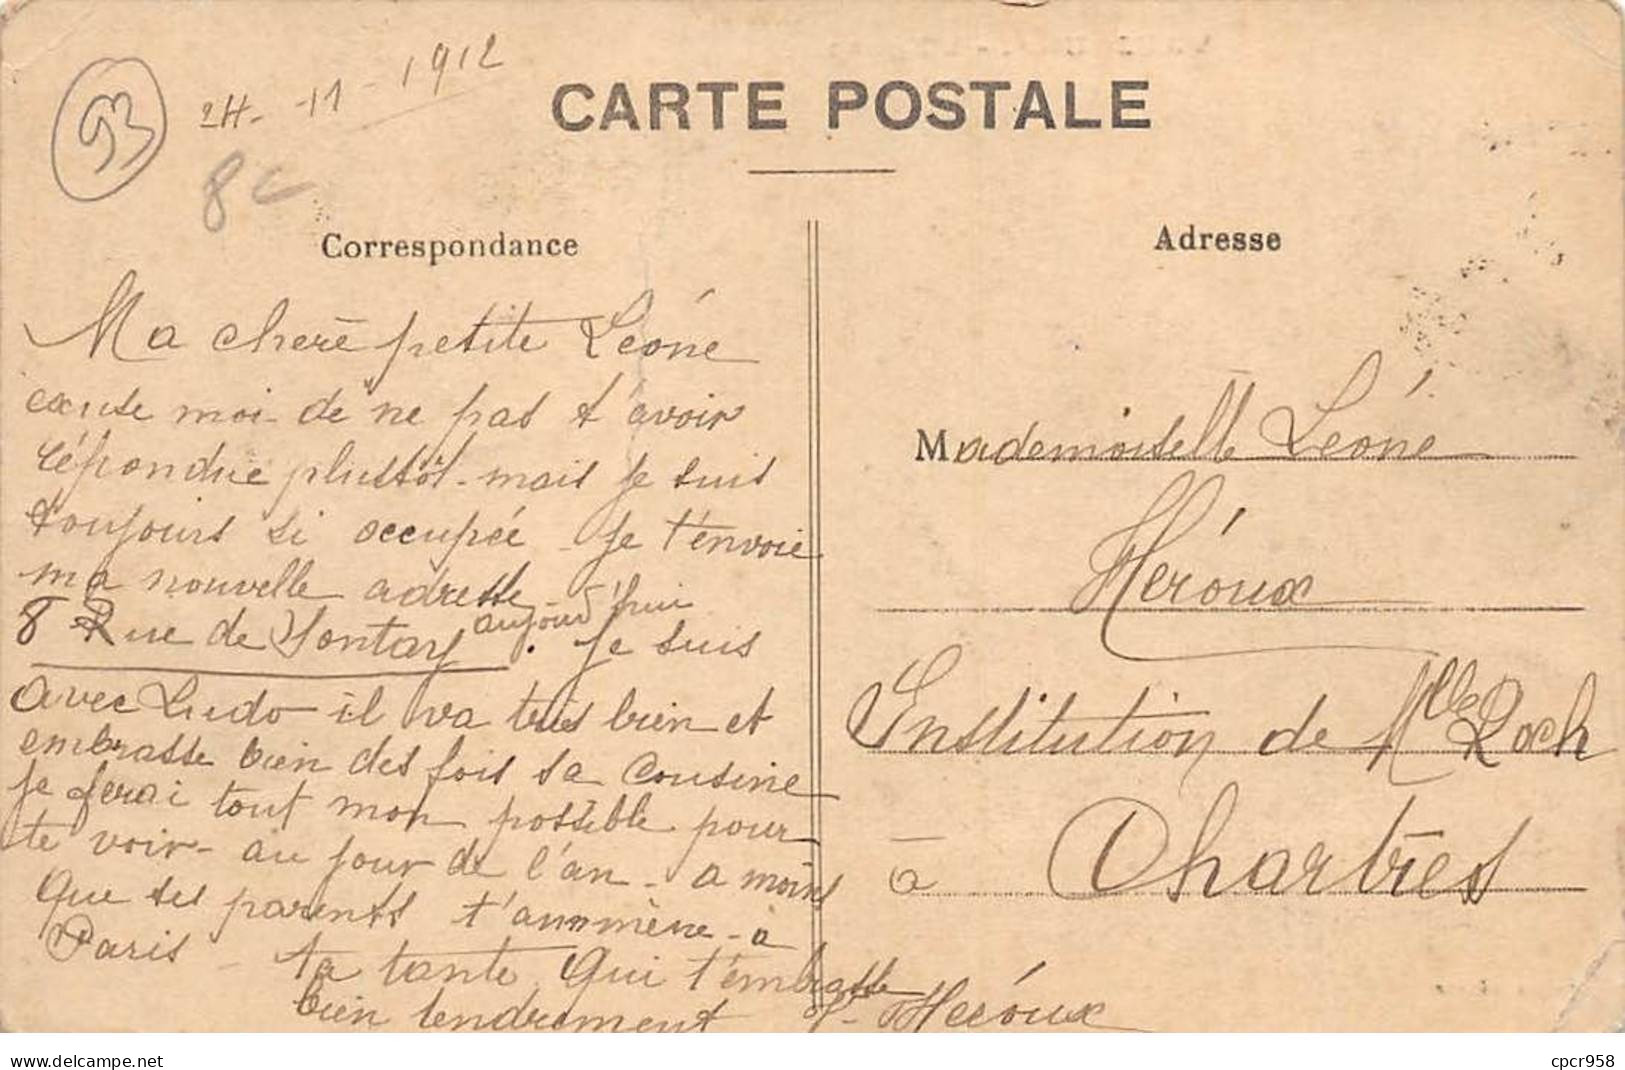 93
24-11-1912
8c
CARTE POSTALE
Correspondance
Ma chere petite Léone
excuse moi de ne pas t'avoir
répondue plustôt - mais je suis
toujours si occupée - je t'envoie
ma nouvelle adresse
8 Rue de aujourd'hui je suis
avec Ludo il va très bien et
embrasse bien des fois sa Cousine
je ferai tout mon possible pour
te voir - au jour de l'an - a moins
que tes parents t'ammène - à
Paris - ta tante qui t'embrasse
bien tendrement Héroux
Adresse
Mademoiselle Léone
Héroux
Institution de Mlle Roch
à Chartres
delcampe.net
cpcr958